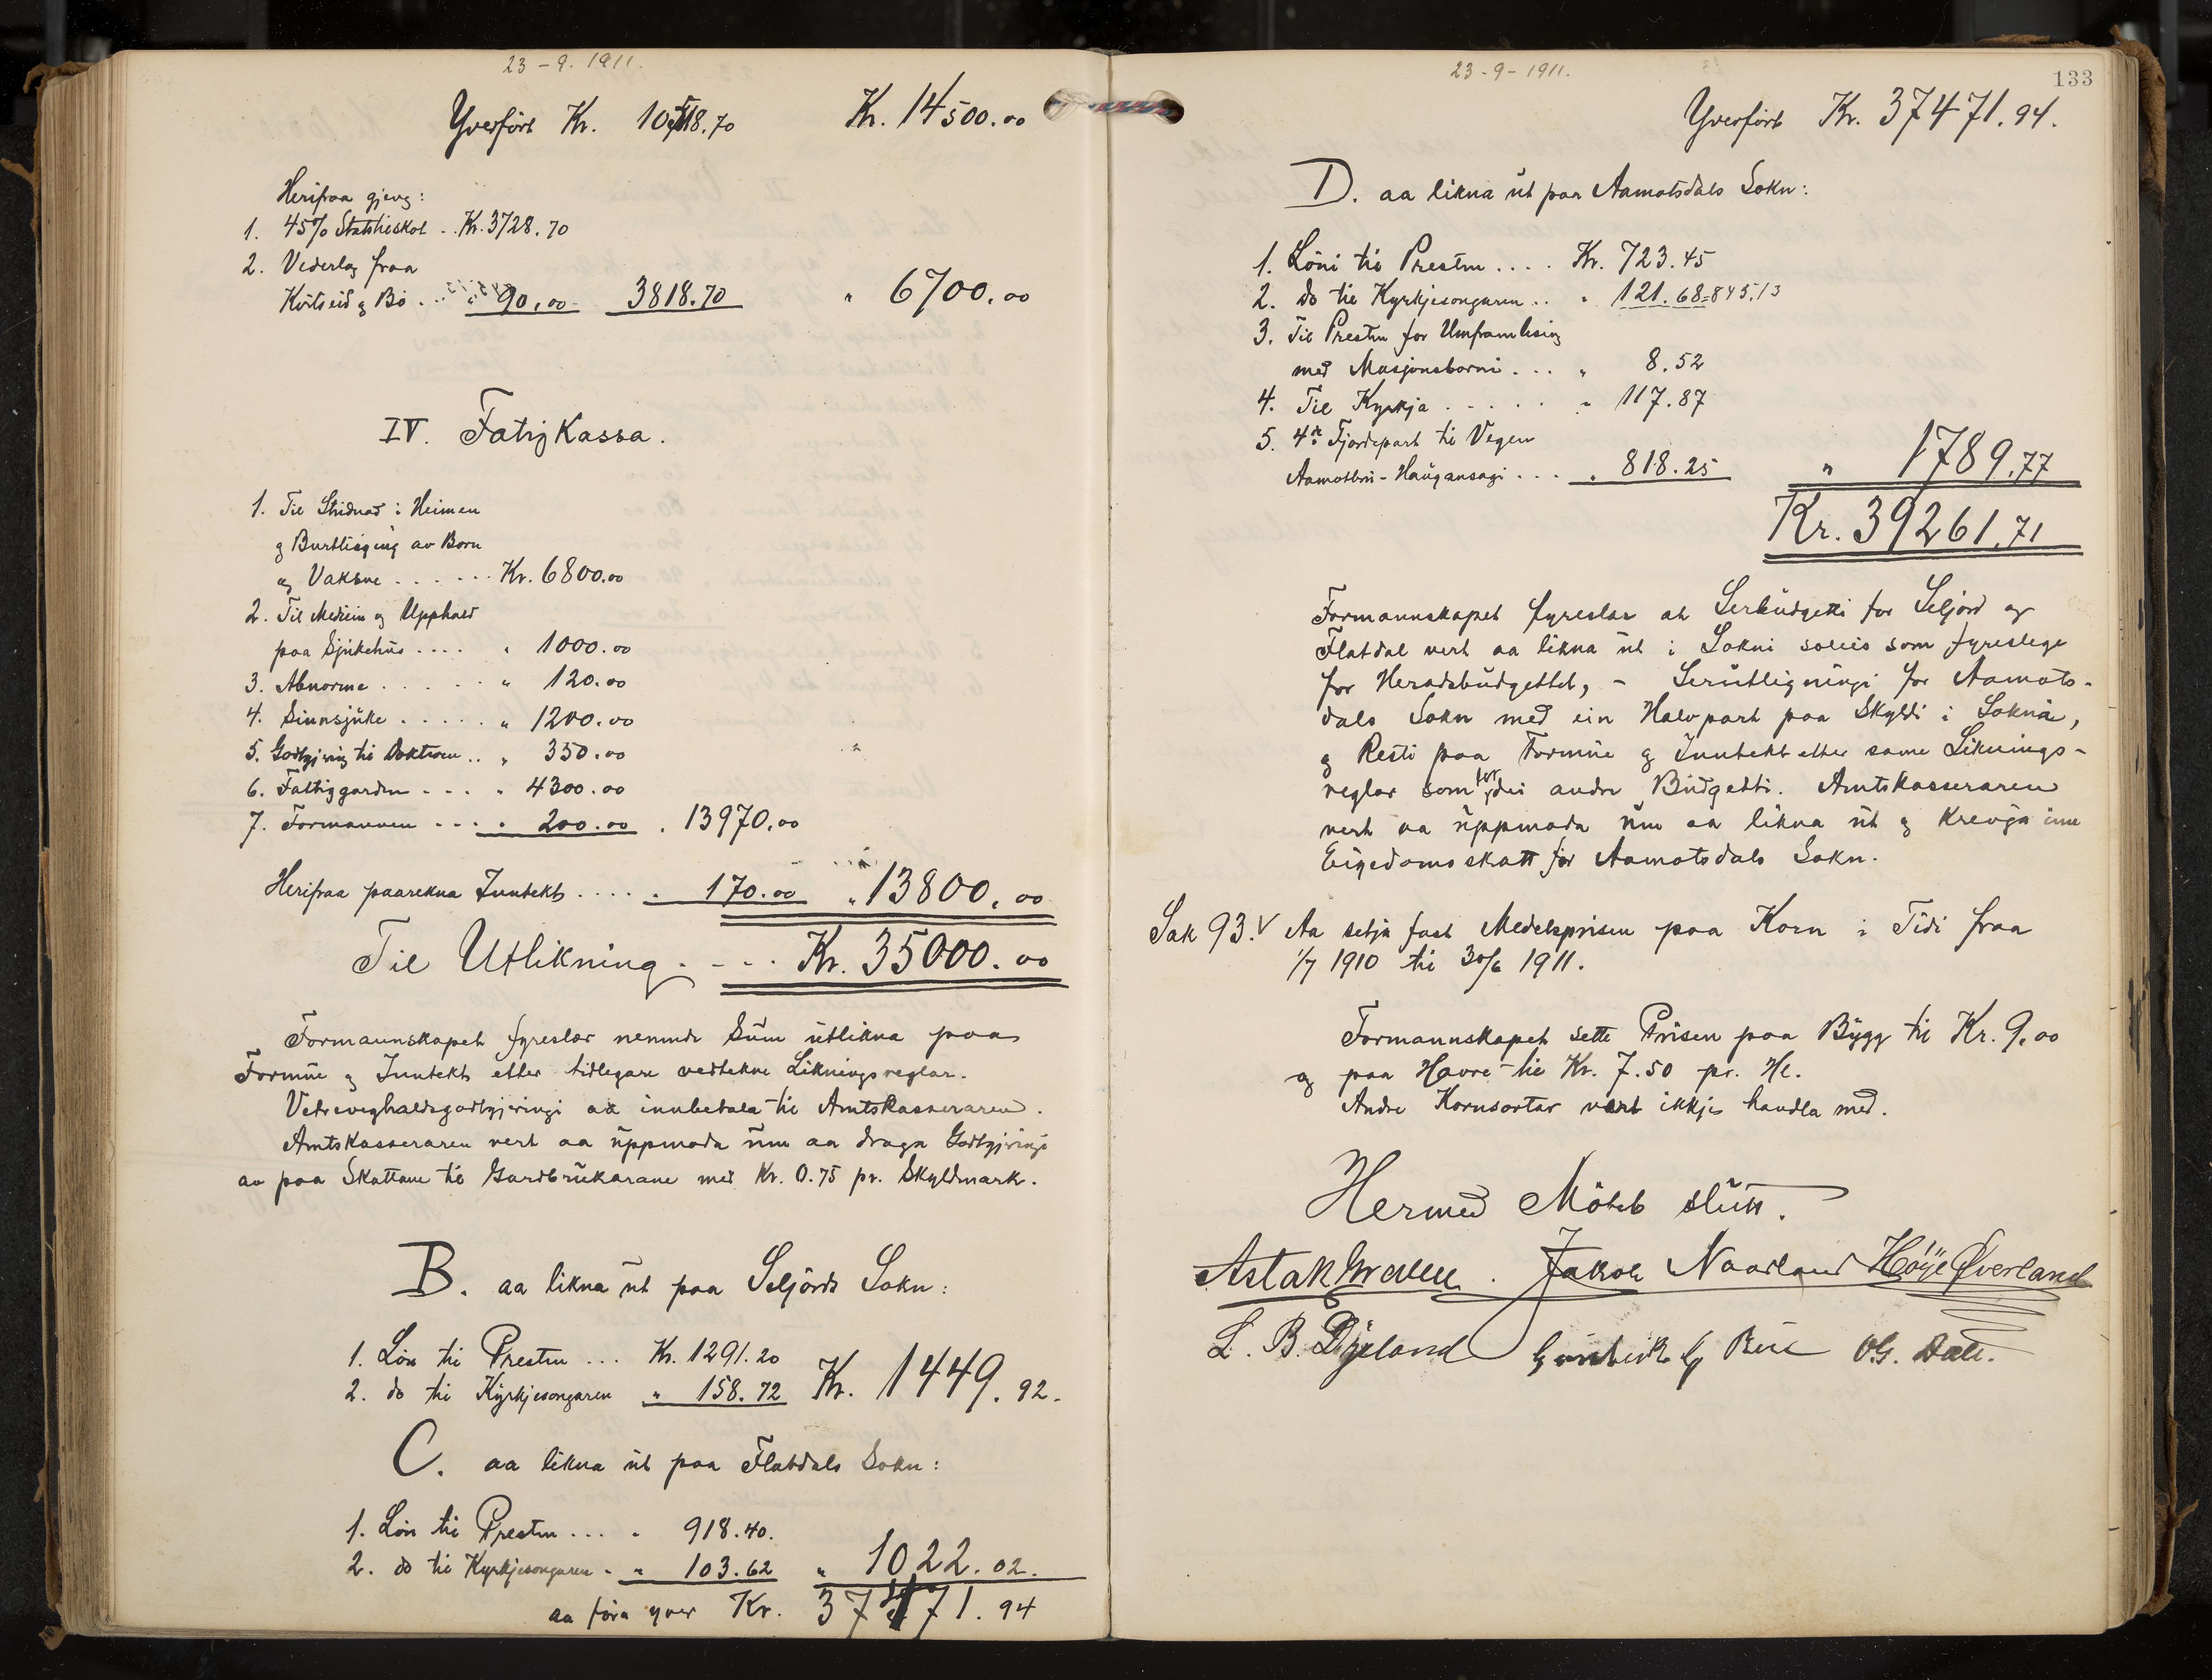 23-9. 1911.
Yverført Kr. 10518.70 Kr. 14500.00
Herifraa gjeng:
1. 45% Stattheskot .. Kr. 3728.70
2. Vederlag fraa
Kvitseid og Bø ... " 90.00 3818.70 " 6700.00
IV. Fatigkassa.
1. Til Studnad i Heimen
og Burtlisging av Born
og Vaksne ...... Kr. 6800.00
2. Til Medicin og Upphald
paa Sjukehus .... " 1000.00
3. Abnorme ..... " 120.00
4. Sinnsjuke ..... " 1200.00
5. Godtgjering til Doktoren .. " 350.00
6. Fattiggarden .... " 4300.00
7. Formannen .... " 200.00 " 13970.00
Herifraa paarekna Inntekt ..... " 170.00 " 13800.00
Til Utlikning .... Kr. 35000.00
Formannskapet fyreslær nemnde Sum utlikna paa
Formue og Inntekt etter tidlegare vedtekne Likningsreglar.
Vetreveghaldsgodtgjeringi aa innbetala til Amtskasseraren.
Amtskasseraren vert aa uppmoda um aa draga Godtgjeringi
av paa Skattane til Gardbrukarane med Kr. 0.75 pr. Skyldmark.
B. aa likna ut paa Seljords Sokn:
1. Løn til Presten ... Kr. 1291.20
2. do til Kyrkjesongaren " 158.72 Kr. 1449.92.
C. aa likna ut paa Flatdals Sokn:
1. Løn til Presten ... " 918.40.
2. do til Kyrkjesongaren . " 103.62 " 1022.02.
aa føra yver Kr. 37471.94
23-9-1911.
133
Yverført Kr. 37471.94.
D. aa likna ut paa Aamotsdals Sokn:
1. Løni til Presten .... Kr. 723.45
2. do til Kyrkjesongaren .. " 121.68=845.13
3. Til Presten for Umframlesing
med Masjonsborni ... " 8.52
4. Til Kyrkja ..... " 117.87
5. 4de Fjordepart til Vegen
Aamotbru-Haugansagi ... " 818.25 " 1789.77
Kr. 39261.71
Formannskapet fyreslær at Serbudgetti for Seljord og
Flatdal vert aa likna ut i Sokni soleis som fyreslege
for Heradsbudgettet, - Serutligningi for Aamots-
dals Sokn med ein Halvpart paa Skyldi i Sokna,
og Resti paa Formue og Inntekt etter same Liknings-
reglar som for dei andre Budgetti. Amtskasseraren
vert aa uppmoda um aa likna ut og krevja inn
Eigedomsskatt for Aamotsdals Sokn.
Sak 93. V Aa setja fast Medelsprisen paa Korn i Tidi fraa
1/7 1910 til 30/6 1911.
Formannskapet sette Prisen paa Bygg til Kr. 9.00
og paa Havre til Kr. 7.50 pr. Hl.
Andre Kornsortar vart ikkje handla med.
Hermed Møtet slutt.
Aslak Jakob Naadland Høye Øverland
L. B. Dyrland O.G. Dale.